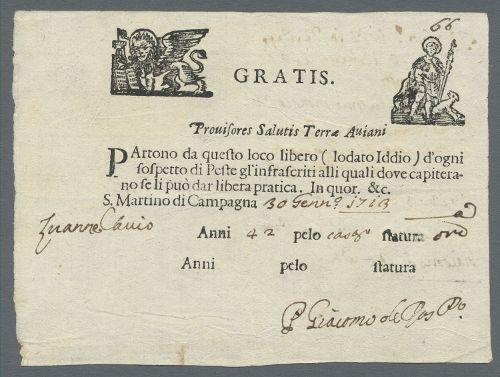 66
GRATIS.
Provisores Salutis Terræ Aviani
PArtono da questo loco libero ( lodato Iddio ) d'ogni
sospetto di Peste gl'infrascriti alli quali dove capitera-
no se li può dar libera pratica. In quor. &c.
S. Martino di Campagna 30 Genn.º 1713
Zuanne Anni 42 pelo statura ord
Anni pelo statura
P. Giacomo de